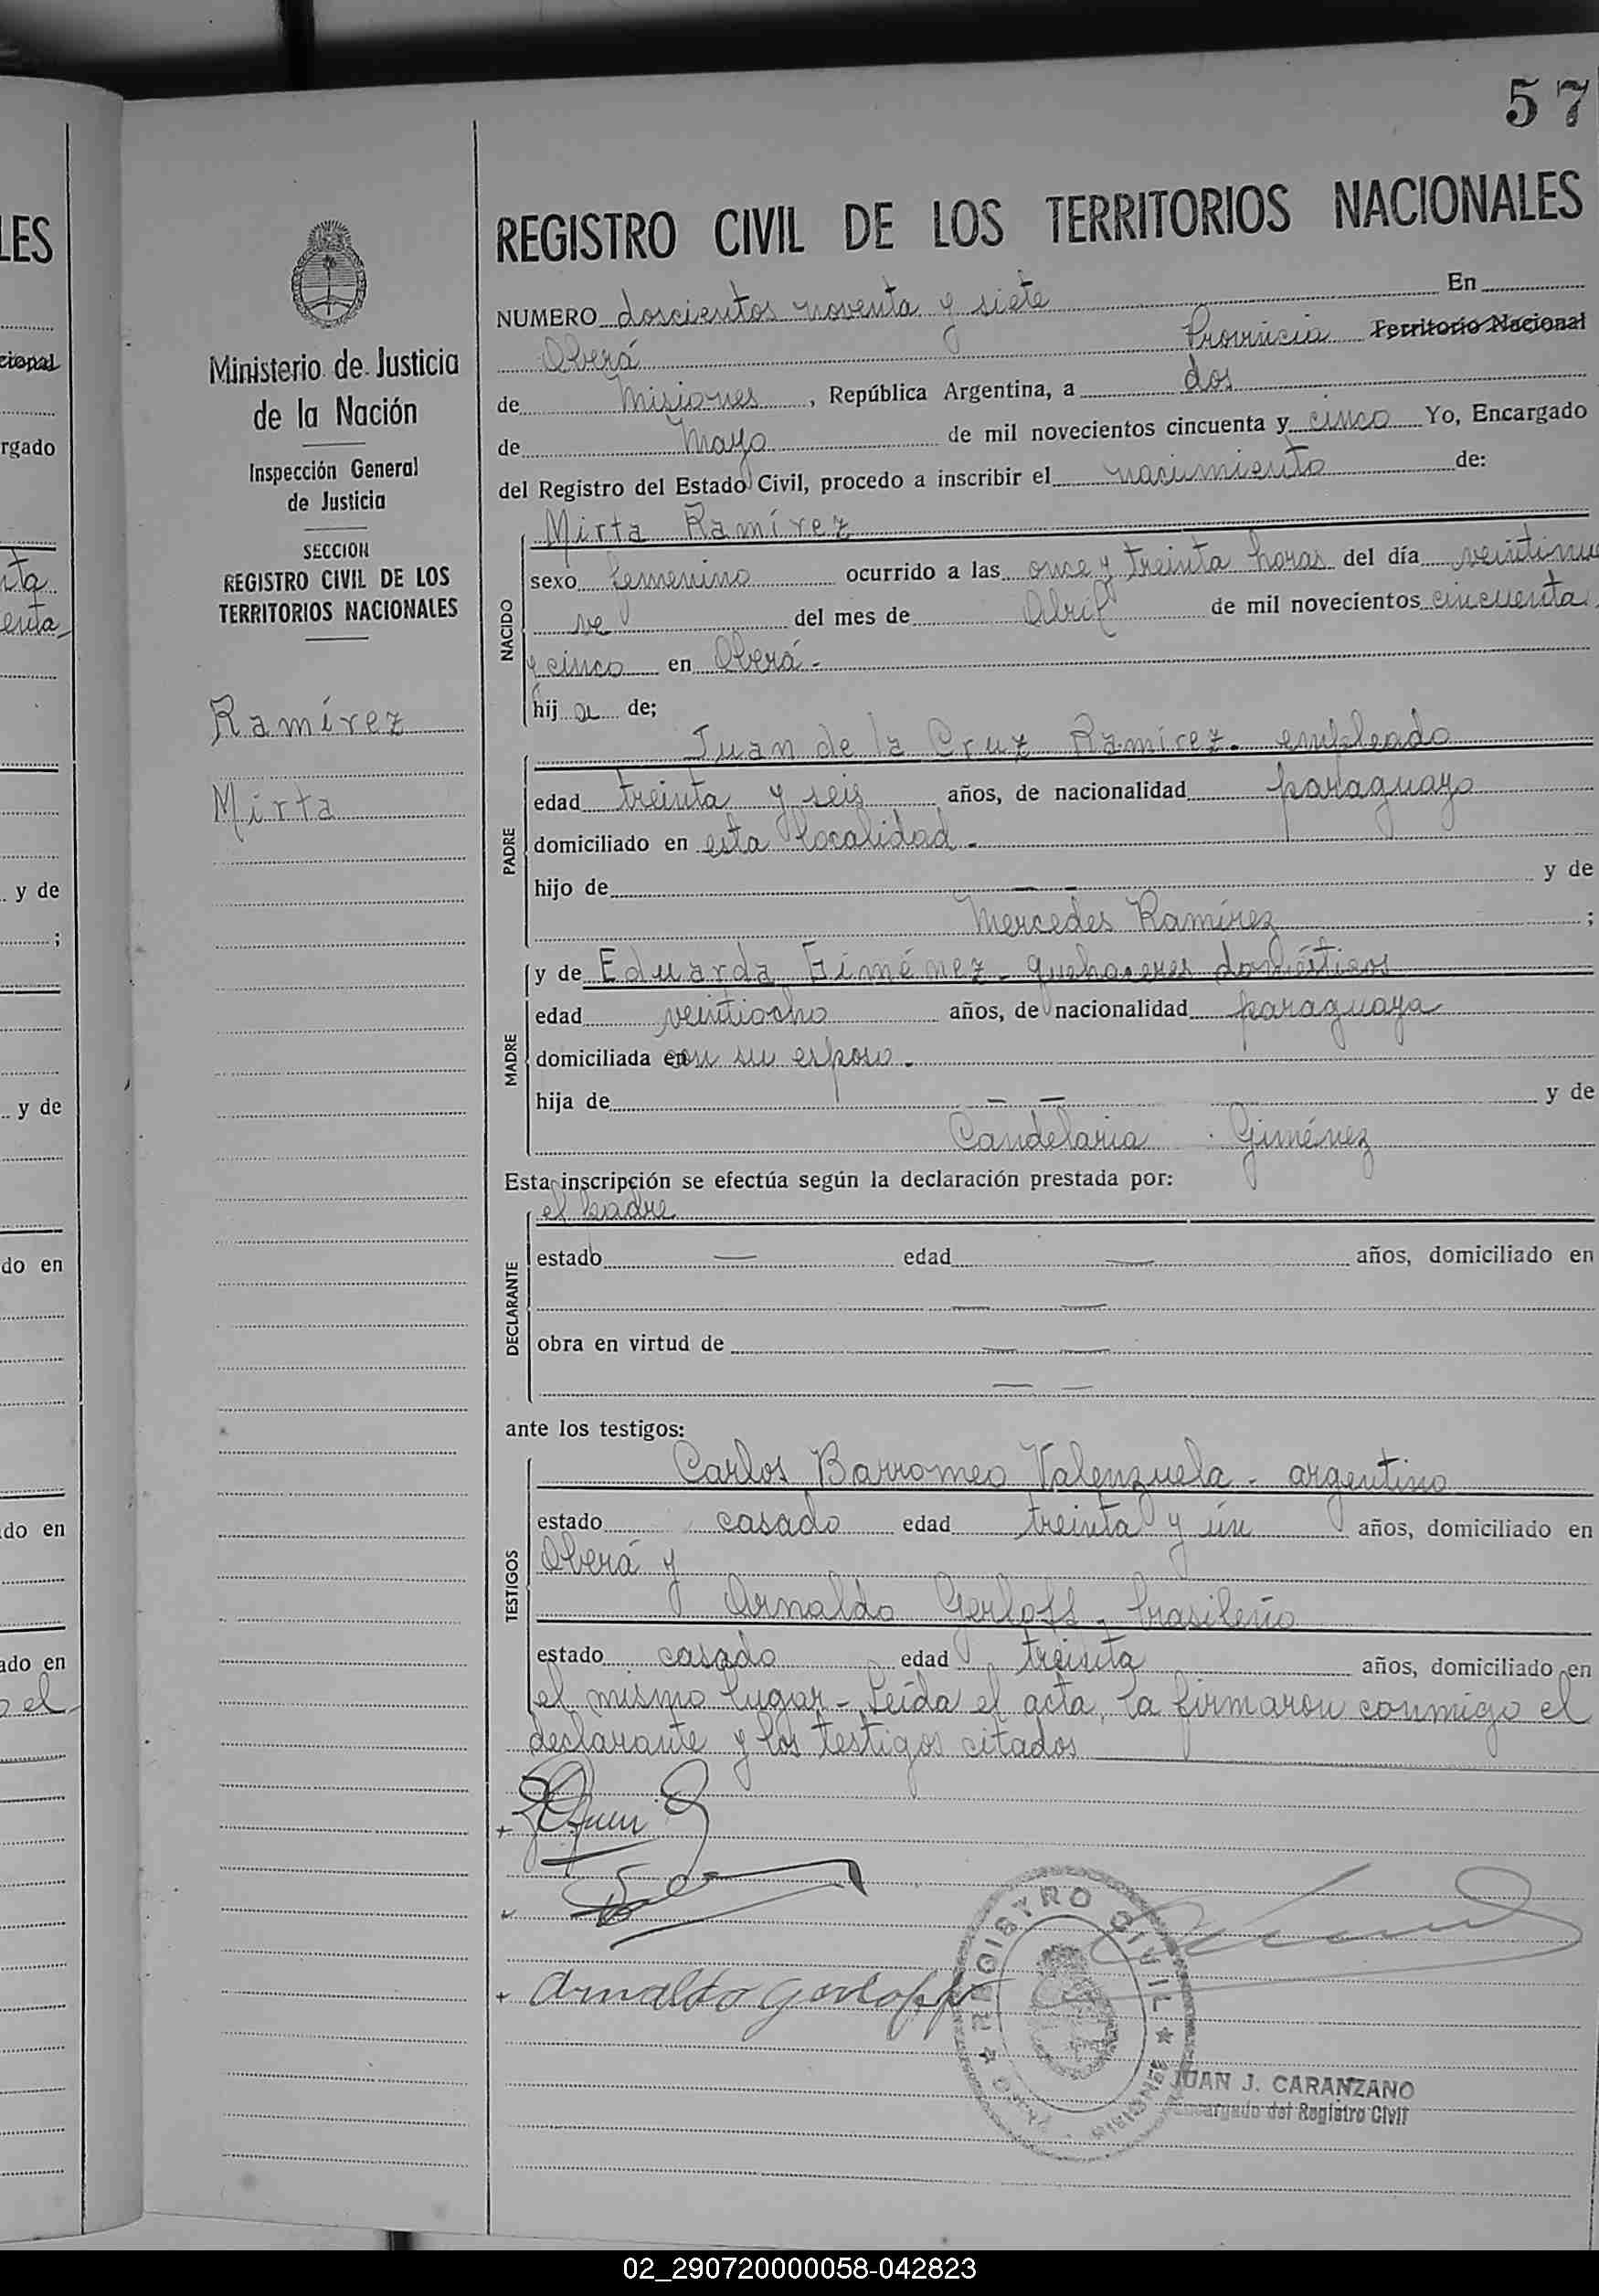 57
REGISTRO CIVIL DE LOS TERRITORIOS NACIONALES
NUMERO doscientos noventa y siete En
Oberá Provincia Territorio Nacional
de Misiones, República Argentina, a dos
de Mayo de mil novecientos cincuenta y cinco Yo, Encargado
del Registro del Estado Civil, procedo a inscribir el nacimiento de:
Mirta Ramírez
NACIDO
sexo femenino ocurrido a las once y treinta horas del día veintinue
ve del mes de Abril de mil novecientos cincuenta
y cinco en Oberá.-
hija de;
PADRE
Juan de la Cruz Ramírez. empleado
edad treinta y seis años, de nacionalidad paraguayo
domiciliado en esta localidad.-
hijo de — — y de
Mercedes Ramírez ;
MADRE
y de Eduarda Giménez - quehaceres domésticos
edad veintiocho años, de nacionalidad paraguaya
domiciliada en con su esposo.-
hija de — — y de
Candelaria Giménez
Esta inscripción se efectúa según la declaración prestada por:
el padre
DECLARANTE
estado — edad — años, domiciliado en
— —
obra en virtud de — —
— —
ante los testigos:
TESTIGOS
Carlos Barromeo Valenzuela - argentino
estado casado edad treinta y ún años, domiciliado en
Oberá y
Arnaldo Gerloff - brasileño
estado casado edad treinta años, domiciliado en
el mismo lugar - Leída el acta, la firmaron conmigo el
declarante y los testigos citados
Arnaldo Gerloff
REGISTRO CIVIL
MISIONES
JUAN J. CARANZANO
Encargado del Registro Civil
Ministerio de Justicia
de la Nación
Inspección General
de Justicia
SECCION
REGISTRO CIVIL DE LOS
TERRITORIOS NACIONALES
Ramírez
Mirta
LES
cional
rgado
nta
enta
y de
;
y de
do en
do en
ado en
o el
02_290720000058-042823